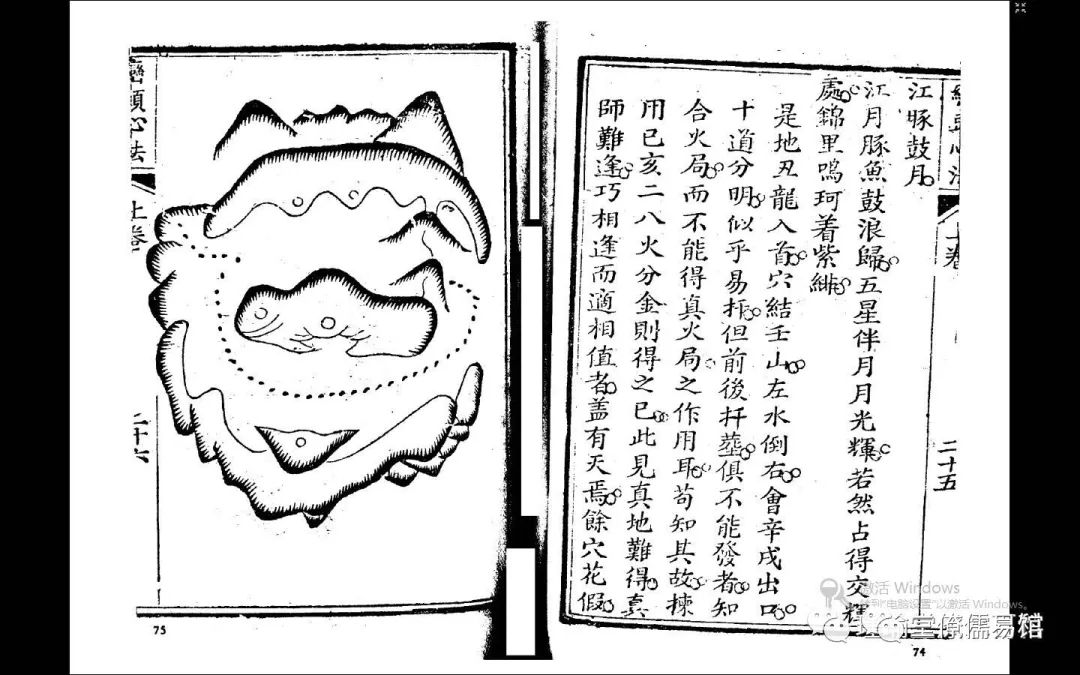 江豚鼓月
江月豚魚鼓浪歸五星伴月月光輝若然占得交輝
處錦里鳴珂着紫緋
是地丑龍入首穴結壬山左水倒右會辛戌出口
十道分明似乎易扦但前後扦塟俱不能發者知
合火局而不能得真火局之作用耳苟知其故揀
用已亥二八火分金則得之已此見真地難得真
師難逢巧相逢而適相值者盖有天焉餘穴花假
上卷
二十五
74
巒頭心法
上卷
二十六
75
激活 Windows
转到"电脑设置"以激活 Windows。
儒易馆